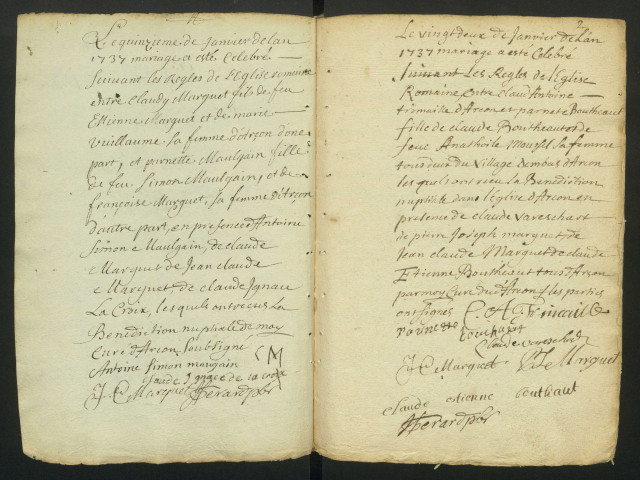 Le quinzieme de Janvier de lan
1737 mariage a esté Celebré
Suivant les Regles de l'Eglise romaine
entre Claudy Marguet fils de feu
Ettienne Marguet et de marie
Vuillaume sa femme d'Arçon d'one
part, et pernette Maulgain fille
de feu Simon Maulgain, et de
françoise Marguet, sa femme d'Arçon
d'autre part, en presence d'Antoine
Simon Maulgain, de claude
Marguet de Jean claude
Marguet de claude Ignace
La Croix, lesquels ont receus La
Benediction nuptiale de moy
Curé d'Arcon Soubsigné
Antoine Simon maugain
claude Ignace de la croix
J C Marguet
2
Le vingt deux de Janvier de Lan
1737 mariage a este Celebré
Suivant Les Regles de l'Eglise
Romaine entre Claud Antoine
d'Arcon et pernete Boutheaut
fille de claude Boutheaut et de
feue sa femme
tous deux du Village d'Arcon
lesquels ont receu La Benediction
nuptiale dans l'Eglise d'Arcon en
presence de claude
de pierre Joseph marguet de
Jean claude Marguet de claude
Etienne Boutheaut tous d'Arcon
par moy Curé dud Arçon et les parties
ont signés C. A.
J C Marguet Marguet
claude etienne bouthaut